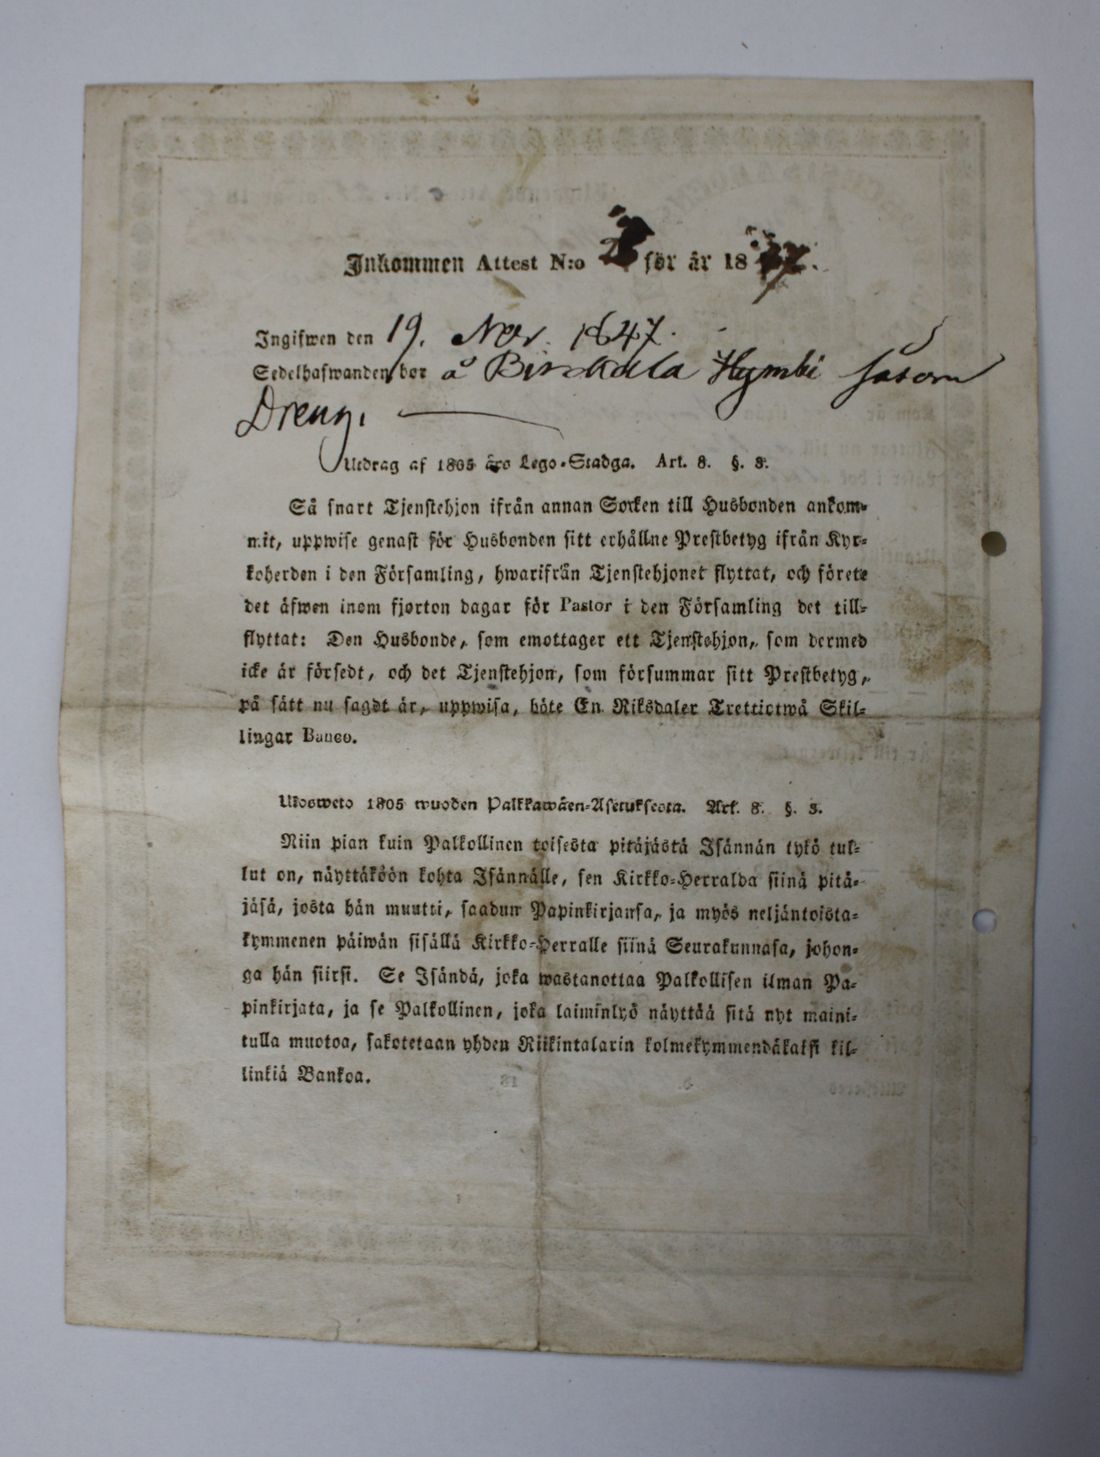 Inkommen Attest N:o 2 för år 1847.
Ingifwen den 19. Nov. 1847.
Sedelhafwanden bor å Birkkala Hymbi såsom
Dreng.
Utdrag af 1805 års Lego-Stadga. Art. 8. §. 3.
Så snart Tjenstehjon ifrån annan Socken till Husbonden ankom-
mit, uppwise genast för Husbonden sitt erhållne Prestbetyg ifrån Kyr-
koherden i den Församling, hwarifrån Tjenstehjonet flyttat, och förete
det äfwen inom fjorton dagar för Pastor i den Församling det till-
flyttat: Den Husbonde, som emottager ett Tjenstehjon, som dermed
icke är försedt, och det Tjenstehjon, som försummar sitt Prestbetyg,
på sätt nu sagdt är, uppwisa, böte En Riksdaler Trettiotwå Skil-
lingar Banco.
Ulosweto 1805 wuoden Palkkawäen-Asetuksesta. Art. 8. §. 3.
Niin pian kuin Palkollinen toisesta pitäjästä Isännän tykö tul-
lut on, näyttäköön kohta Isännälle, sen Kirkko-Herralda siinä pitä-
jäsä, josta hän muutti, saadun Papinkirjansa, ja myös neljäntoista-
kymmenen päiwän sisällä Kirkko-Herralle siinä Seurakunnasa, johon-
ga hän siirsi. Se Isändä, joka wastanottaa Palkollisen ilman Pa-
pinkirjata, ja se Palkollinen, joka laiminlyö näyttää sitä nyt maini-
tulla muotoa, sakotetaan yhden Riikintalarin kolmekymmendäkaksi kil-
linkiä Bankoa.